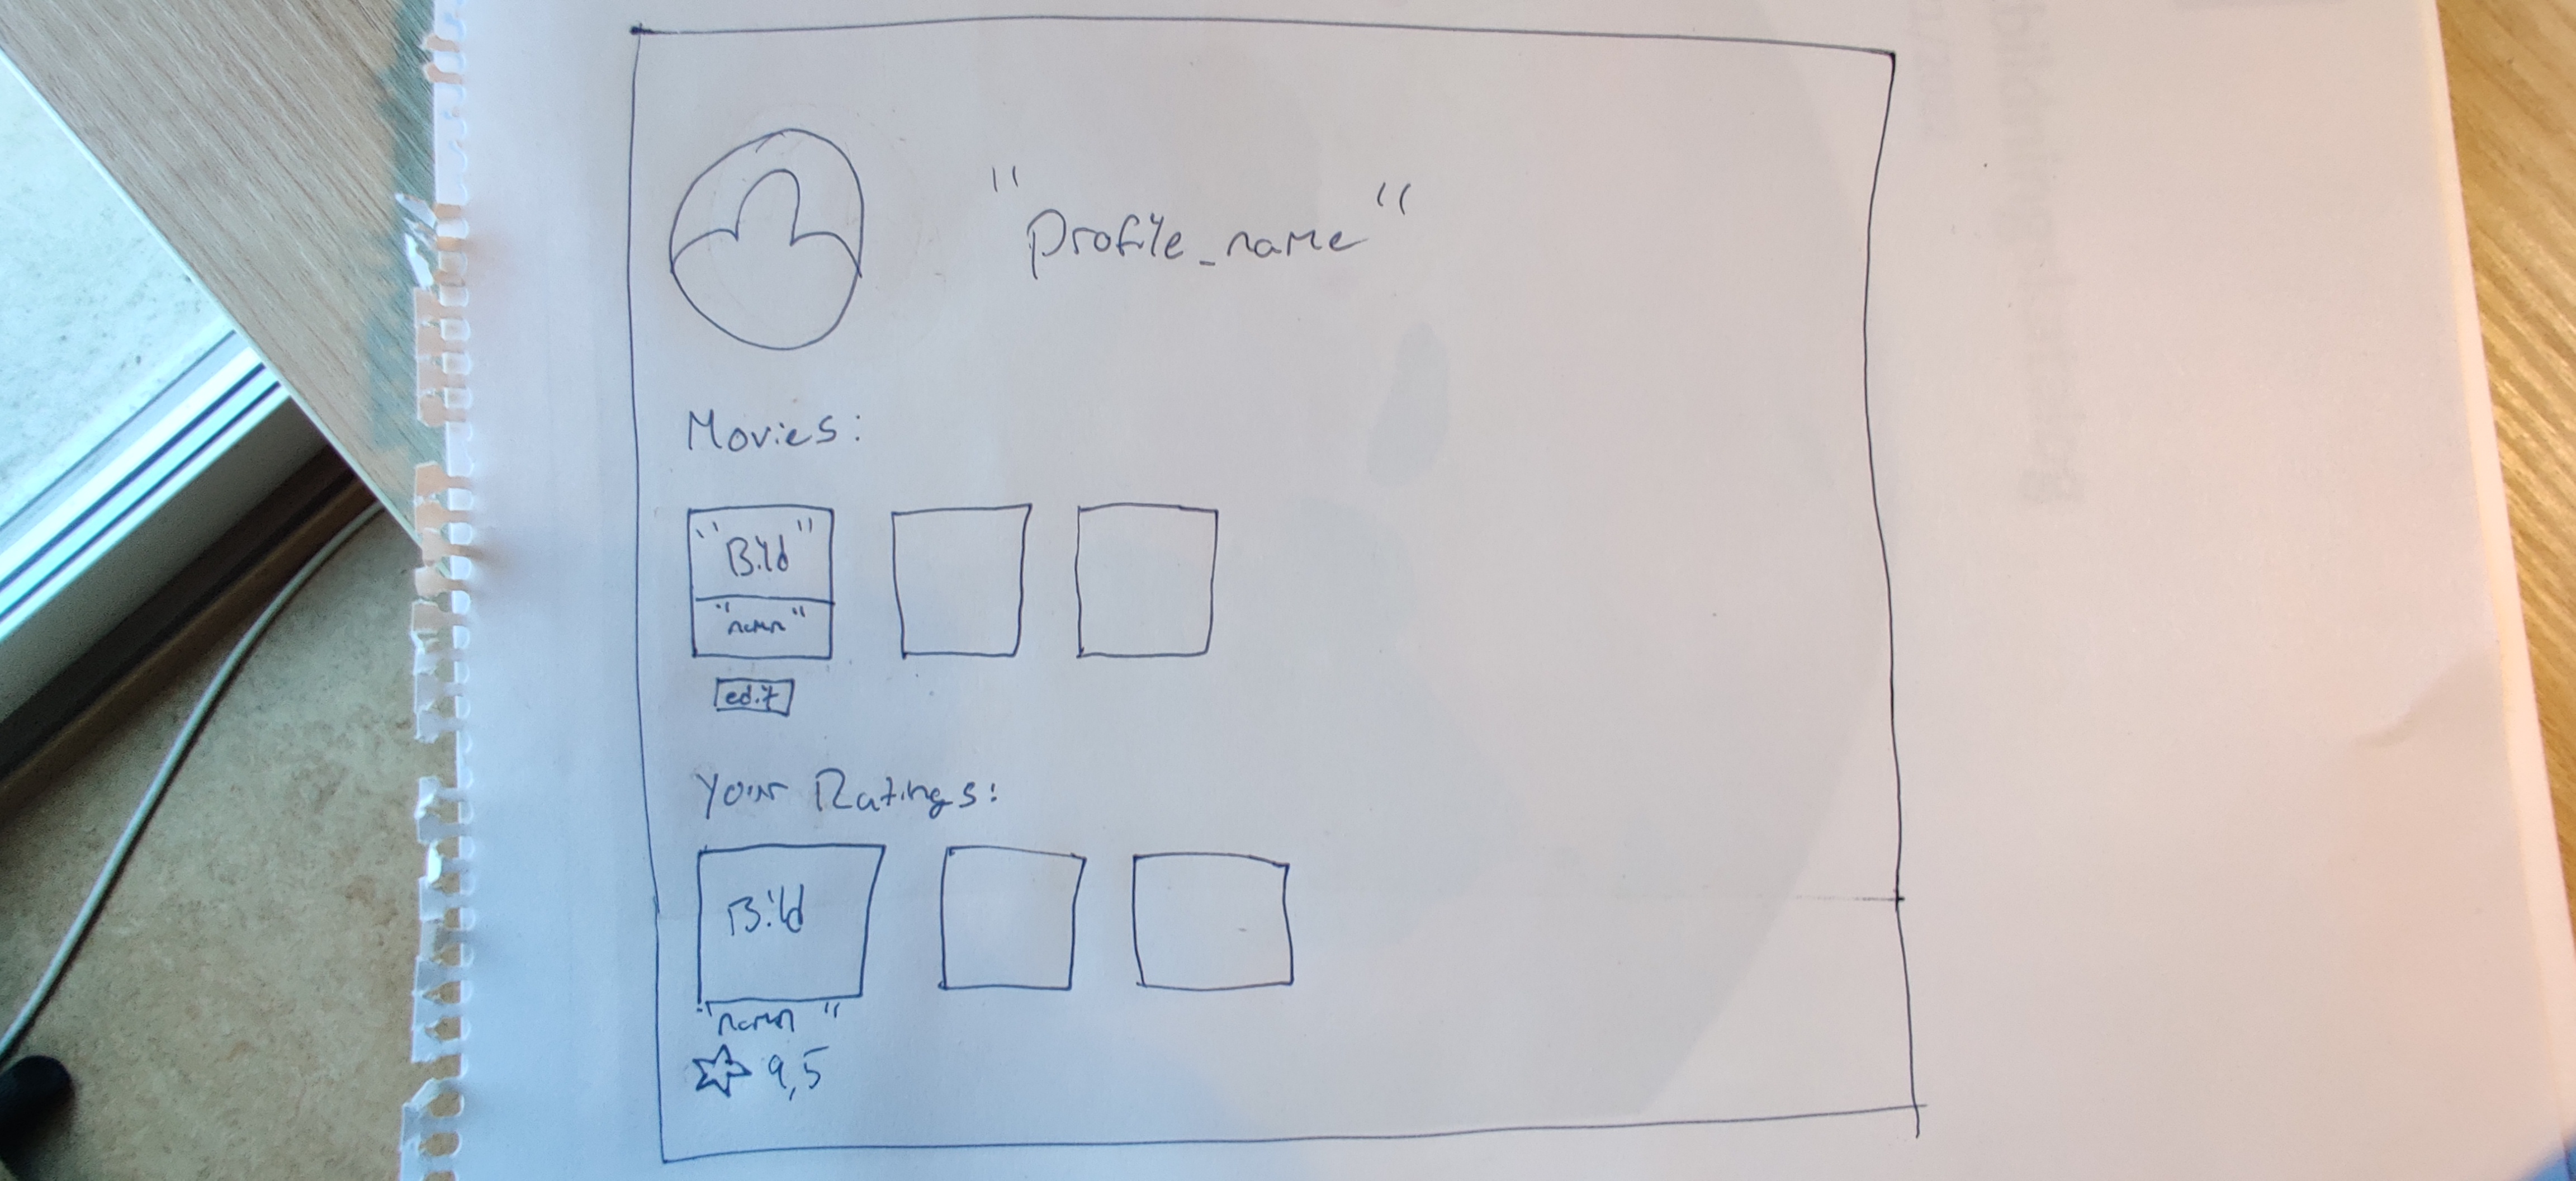 "Profile_name"
Movies:
"Bild"
edit
Your Ratings:
Bild
9,5